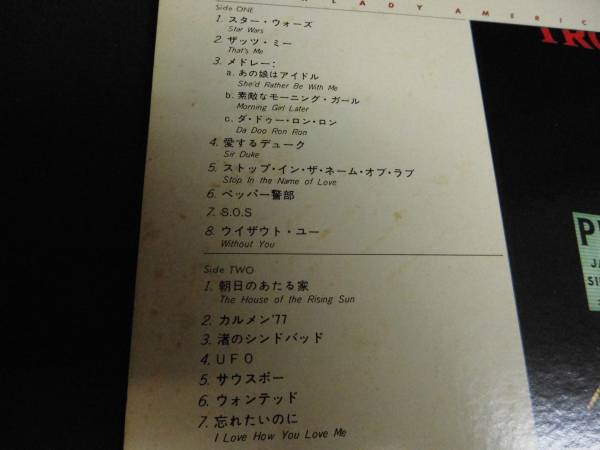 LADY AMERIC
Side ONE
1. スター・ウォーズ
Star Wars
2. ザッツ・ミー
That's Me
3. メドレー:
a. あの娘はアイドル
She'd Rather Be With Me
b. 素敵なモーニング・ガール
Morning Girl Later
c. ダ・ドゥー・ロン・ロン
Da Doo Ron Ron
4. 愛するデューク
Sir Duke
5. ストップ・イン・ザ・ネーム・オブ・ラブ
Stop In the Name of Love
6. ペッパー警部
7. S.O.S
8. ウイザウト・ユー
Without You
Side TWO
1. 朝日のあたる家
The House of the Rising Sun
2. カルメン'77
3. 渚のシンドバッド
4. UFO
5. サウスポー
6. ウォンテッド
7. 忘れたいのに
I Love How You Love Me
TRO
P
JA
SI